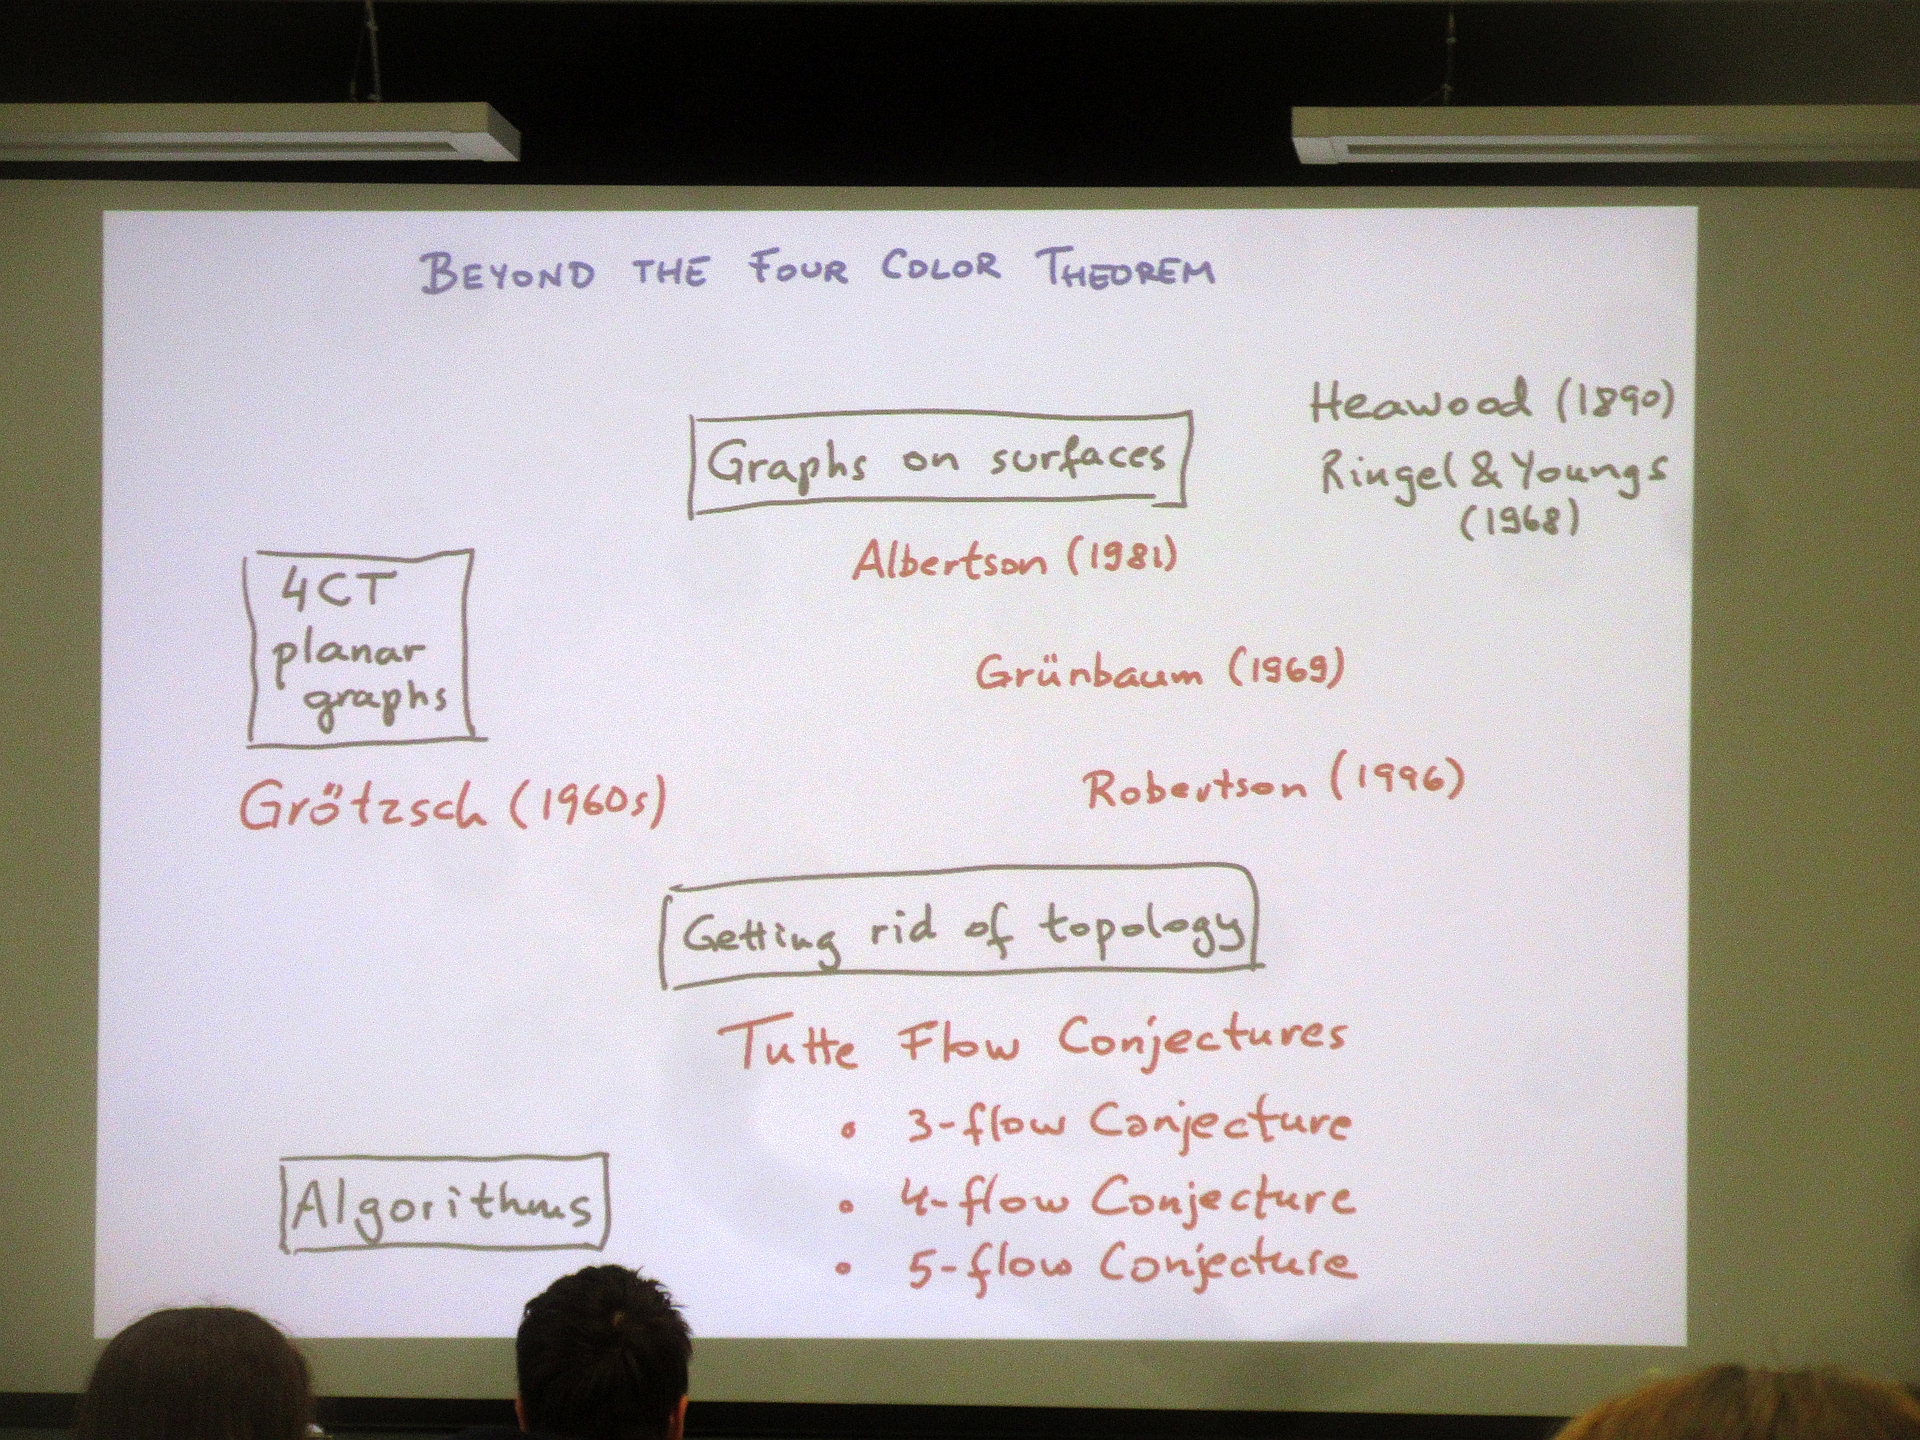 BEYOND THE FOUR COLOR THEOREM
Graphs on surfaces
Heawood (1890)
Ringel & Youngs
(1968)
Albertson (1981)
4CT
planar
graphs
Grünbaum (1969)
Grötzsch (1960s)
Robertson (1996)
Getting rid of topology
Tutte Flow Conjectures
• 3-flow Conjecture
• 4-flow Conjecture
• 5-flow Conjecture
Algorithms